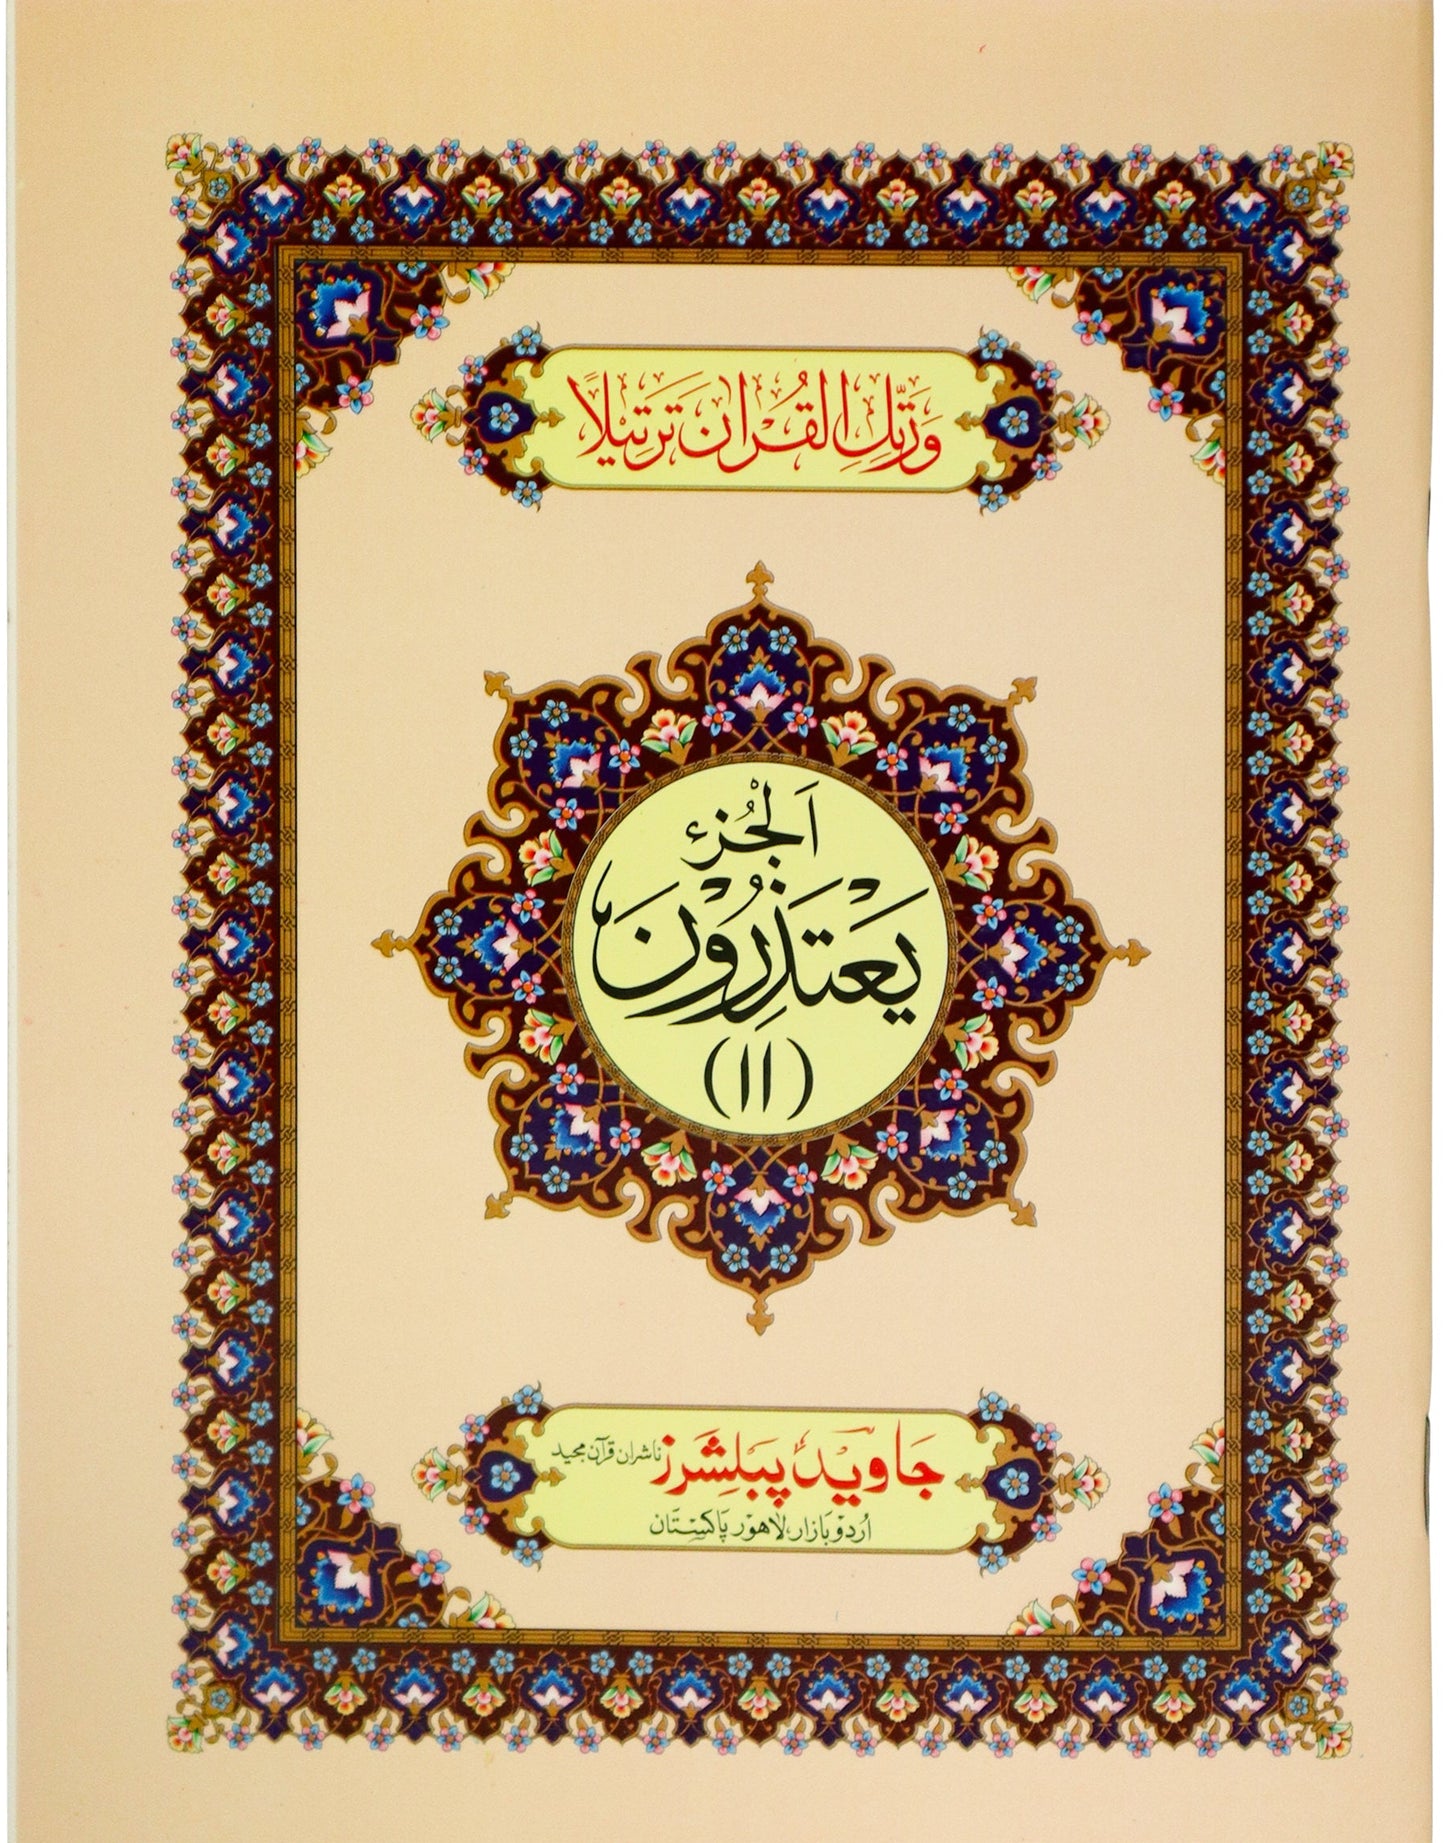 وَرَتِّلِ الْقُرْاٰنَ تَرْتِيْلًا
اَلْجُزء
يَعْتَذِرُوْنَ
(۱۱)
جَاوید پَبلِشَرز ناشران قرآن مجید
اُردو بازار، لاھور پاکستان